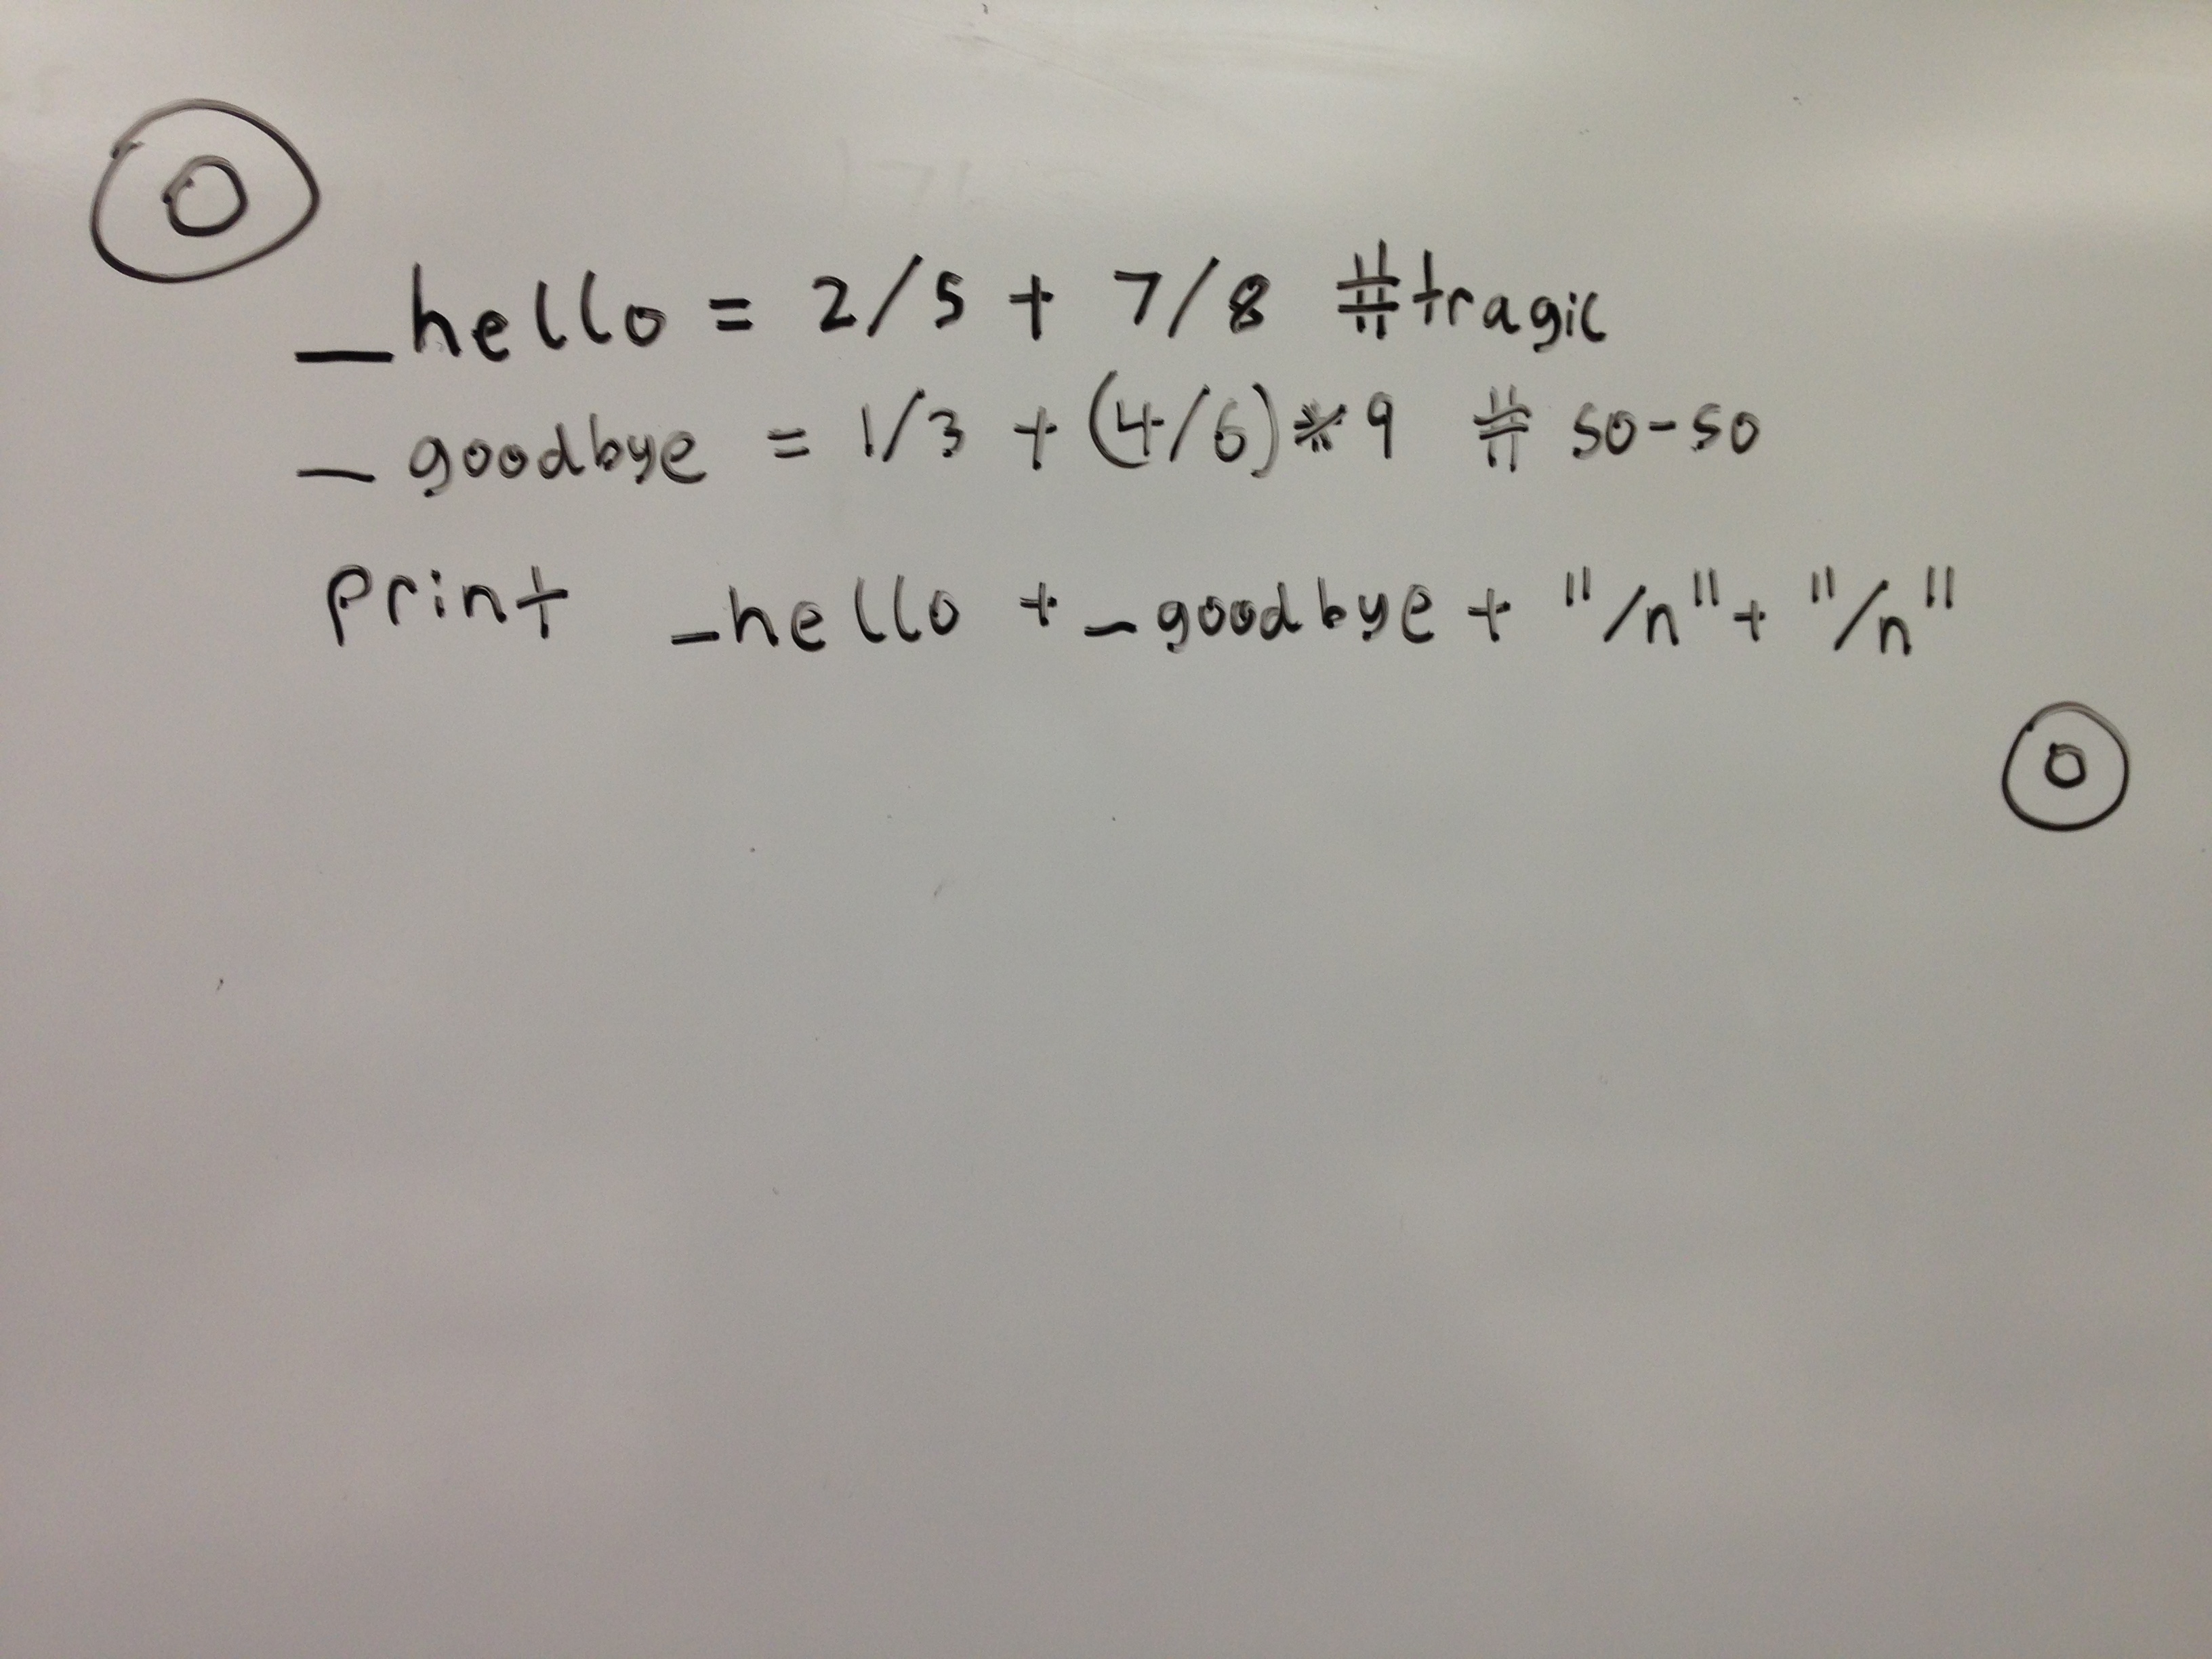 0
_hello = 2/5 + 7/8 #tragic
_goodbye = 1/3 + (4/6)*9 # so-so
print _hello + _goodbye + "/n" + "/n"
0